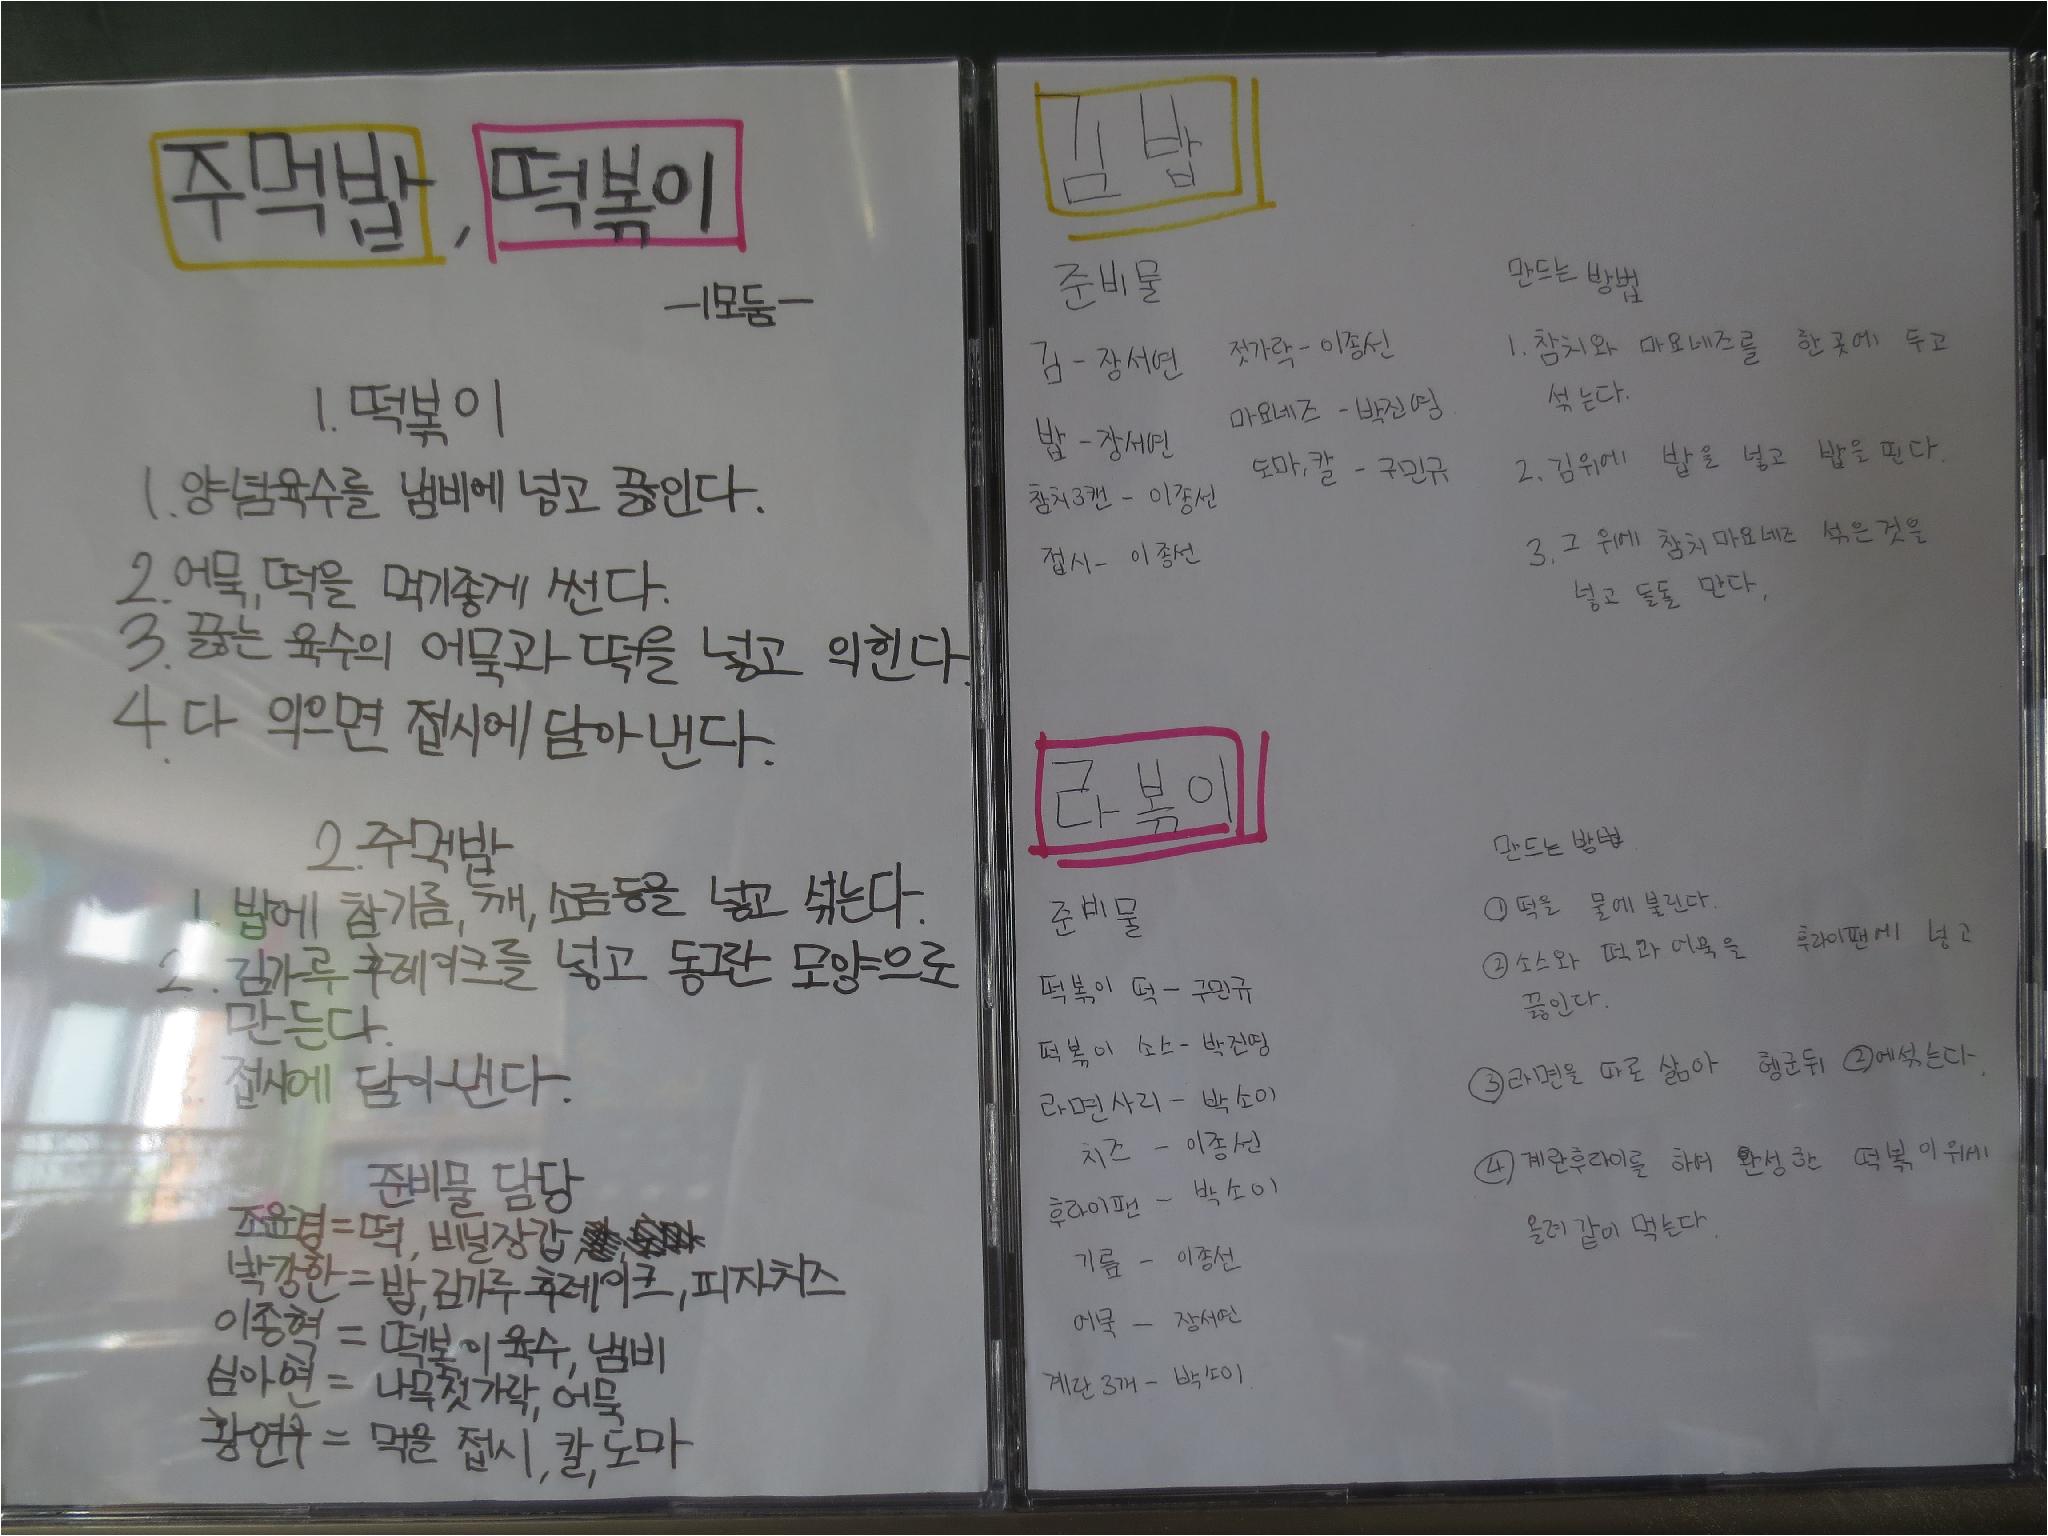 주먹밥, 떡볶이
-1모둠-
1. 떡볶이
1. 양념육수를 냄비에 넣고 끓인다.
2. 어묵, 떡을 먹기좋게 썬다.
3. 끓는 육수의 어묵과 떡을 넣고 의힌다.
4. 다 의으면 접시에 담아 낸다.
2. 주먹밥
1. 밥에 참기름, 깨, 소금등을 넣고 섞는다.
2. 김가루 후레이크를 넣고 동그란 모양으로
만든다.
접시에 담아낸다.
준비물 담당
조윤경 = 떡, 비닐장갑,
박강한 = 밥, 김가루 후레이크, 피자치즈
이종혁 = 떡볶이 육수, 냄비
심아연 = 나무젓가락, 어묵
황연우 = 먹을 접시, 칼, 도마
김밥
준비물
김 - 장서연 젓가락 - 이종선
밥 - 장서연 마요네즈 - 박진영
참치3캔 - 이종선 도마, 칼 - 구민규
접시 - 이종선
만드는 방법
1. 참치와 마요네즈를 한곳에 두고
섞는다.
2. 김위에 밥을 넣고 밥을 핀다.
3. 그 위에 참치마요네즈 섞은것을
넣고 돌돌 만다.
라볶이
준비물
떡볶이 떡 - 구민규
떡볶이 소스 - 박진영
라면사리 - 박소이
치즈 - 이종선
후라이팬 - 박소이
기름 - 이종선
어묵 - 장서연
계란 3개 - 박소이
만드는 방법
① 떡을 물에 불린다.
② 소스와 떡과 어묵을 후라이팬에 넣고
끓인다.
③ 라면을 따로 삶아 헹군뒤 ②에섞는다.
④ 계란후라이를 하여 완성한 떡볶이위에
올려 같이 먹는다.